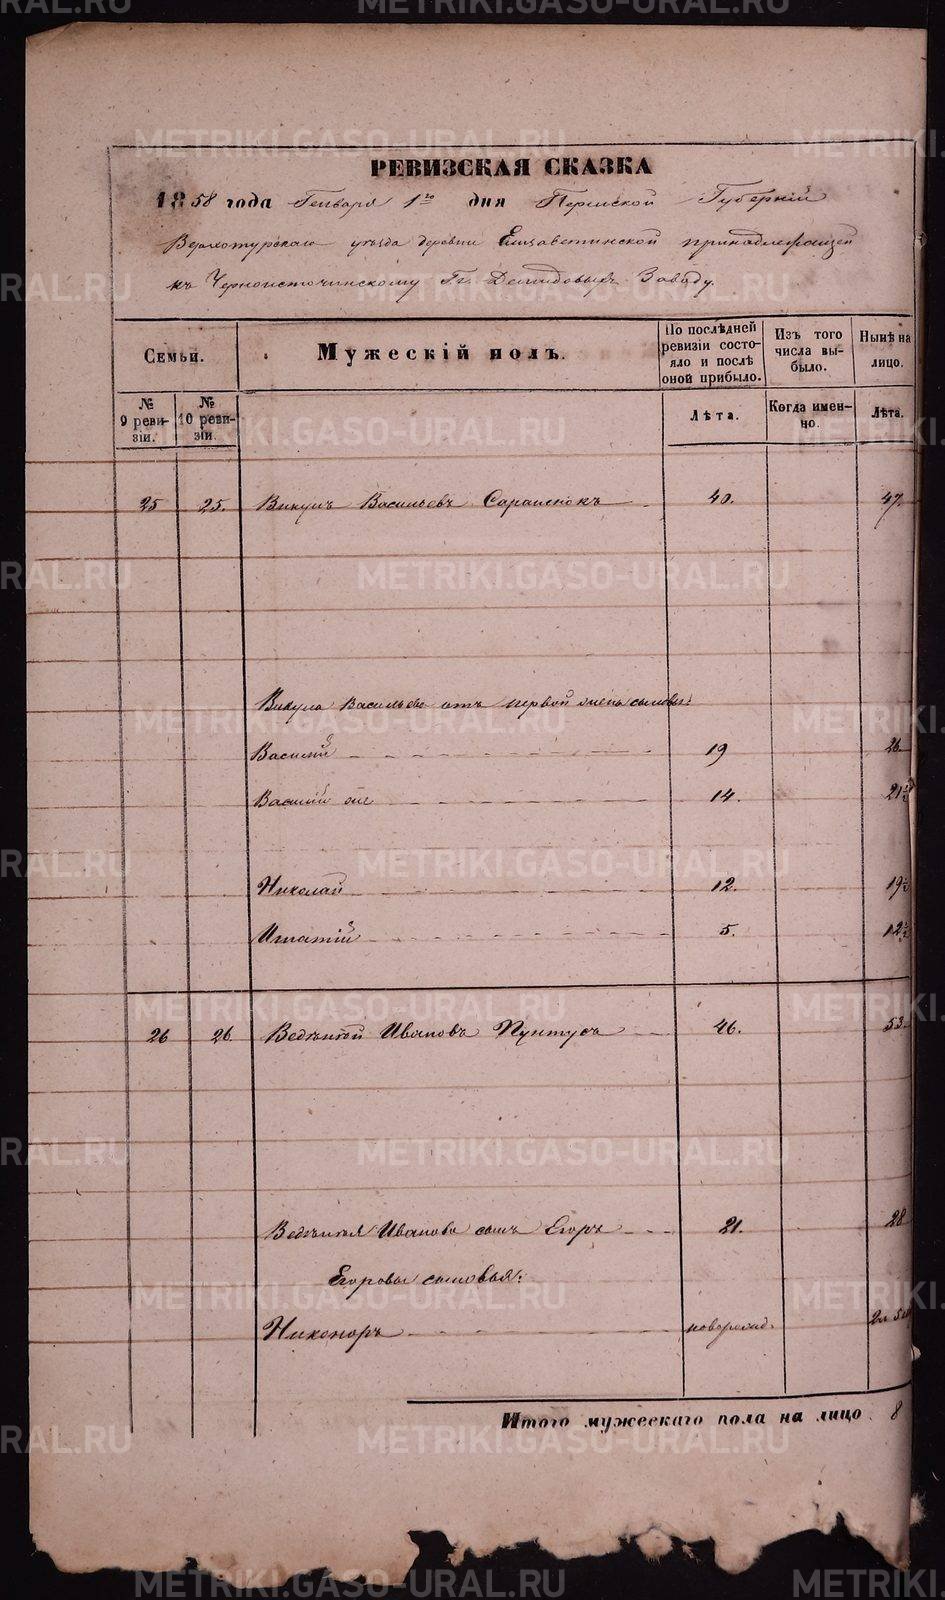 METRIKI.GASO-URAL.RU
РЕВИЗСКАЯ СКАЗКА
1858 года Генваря 1го дня Пермской Губерніи
Верхотурскаго уѣзда деревни Елизаветинской принадлежащей
къ Черноисточинскому Гг. Демидовыхъ Заводу.
Семьи.
Мужескій полъ.
По послѣдней ревизіи состояло и послѣ оной прибыло.
Изъ того числа выбыло.
Нынѣ на лицо.
№ 9 ревизіи.
№ 10 ревизіи.
Лѣта.
Когда именно.
Лѣта.
25 25. Викулъ Васильевъ 40. 47.
Викула Васильева отъ первой жены сыновья:
Василій 19 26
Василій 2й 14. 21½
Николай 12. 19½
Игнатій 5. 12½
26 26 Ведѣнтой Ивановъ Пунтусъ 46. 53
Ведѣнтоя Иванова сынъ Егоръ 21. 28
Егоровы сыновья:
Никоноръ новорожд.
Итого мужескаго пола на лицо 8